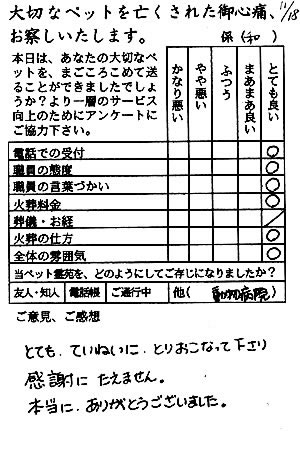 大切なペットを亡くされた御心痛、
11/18
お察しいたします。
係(和)
本日は、あなたの大切なペットを、まごころこめて送ることができましたでしょうか?より一層のサービス向上のためにアンケートにご協力下さい。
かなり悪い
やや悪い
ふつう
まあまあ良い
とても良い
電話での受付 ○
職員の態度 ○
職員の言葉づかい ○
火葬料金 ○
葬儀・お経 /
火葬の仕方 ○
全体の雰囲気 ○
当ペット霊苑を、どのようにしてご存じになりましたか?
友人・知人 電話帳 ご通行中 他(動物病院)
ご意見、ご感想
とても、ていねいに、とりおこなって下さり
感謝にたえません。
本当に、ありがとうございました。